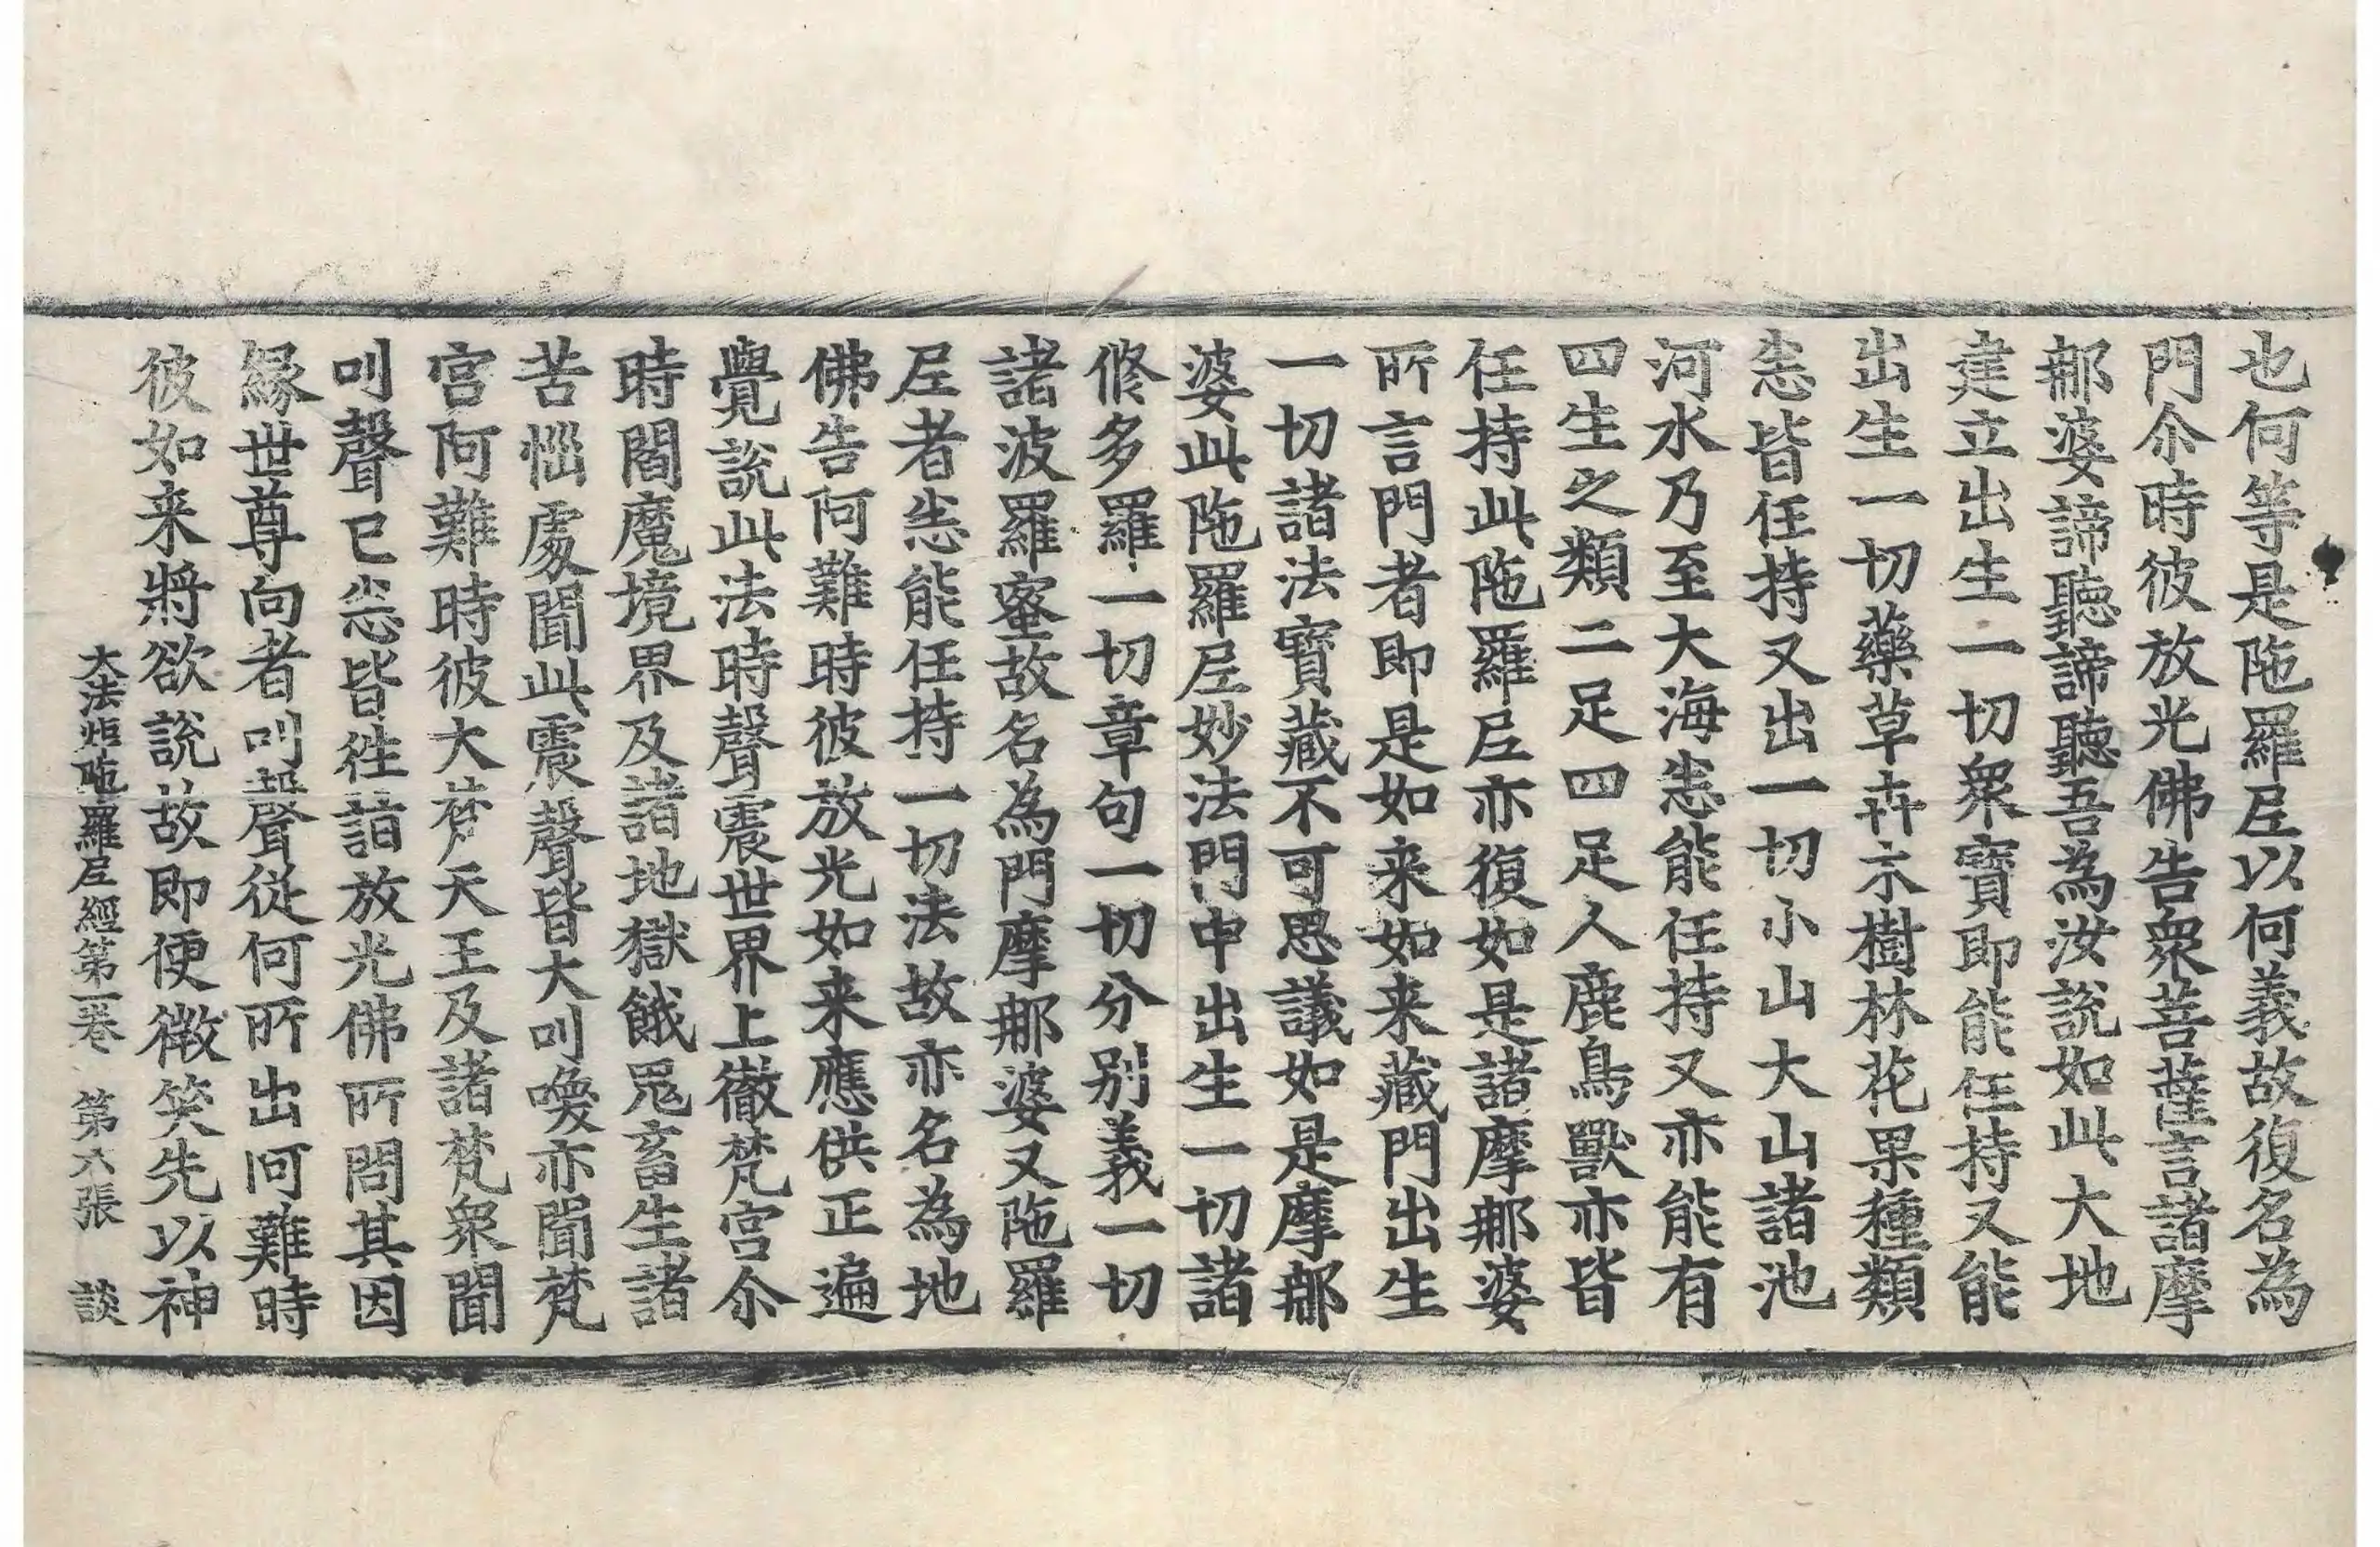 也何等是陁羅𡰱以何義故復名為
門尒時彼放光佛告衆菩薩言諸摩
那婆諦聽諦聽吾為汝說如此大地
建立出生一切衆寶即能任持又能
出生一切藥草卉木樹林花果種類
悉皆任持又出一切小山大山諸池
河水乃至大海悉能任持又亦能有
四生之類二足四足人鹿鳥獸亦皆
任持此陁羅𡰱亦復如是諸摩那婆
所言門者即是如来如来藏門出生
一切諸法寶藏不可思議如是摩那
婆此陁羅𡰱妙法門中出生一切諸
修多羅一切章句一切分別義一切
諸波羅蜜故名為門摩那婆又陁羅
𡰱者悉能任持一切法故亦名為地
佛告阿難時彼放光如来應供正遍
覺說此法時聲震世界上徹梵宮尒
時閻魔境界及諸地獄餓鬼畜生諸
苦惱處聞此震聲皆大叫喚亦聞梵
宮阿難時彼大梵天王及諸梵衆聞
叫聲已悉皆往詣放光佛所問其因
緣世尊向者叫聲從何所出阿難時
彼如来將欲說故即便微笑先以神
大法炬陁羅𡰱經第一卷　第六張　談